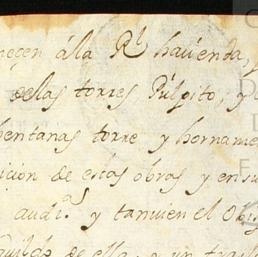 neçen á la Rl hacienda,
delas torres Púlpito, y
bentanas torre y hornamen
icion de estas obras y en su
audia y tanvien el Obis